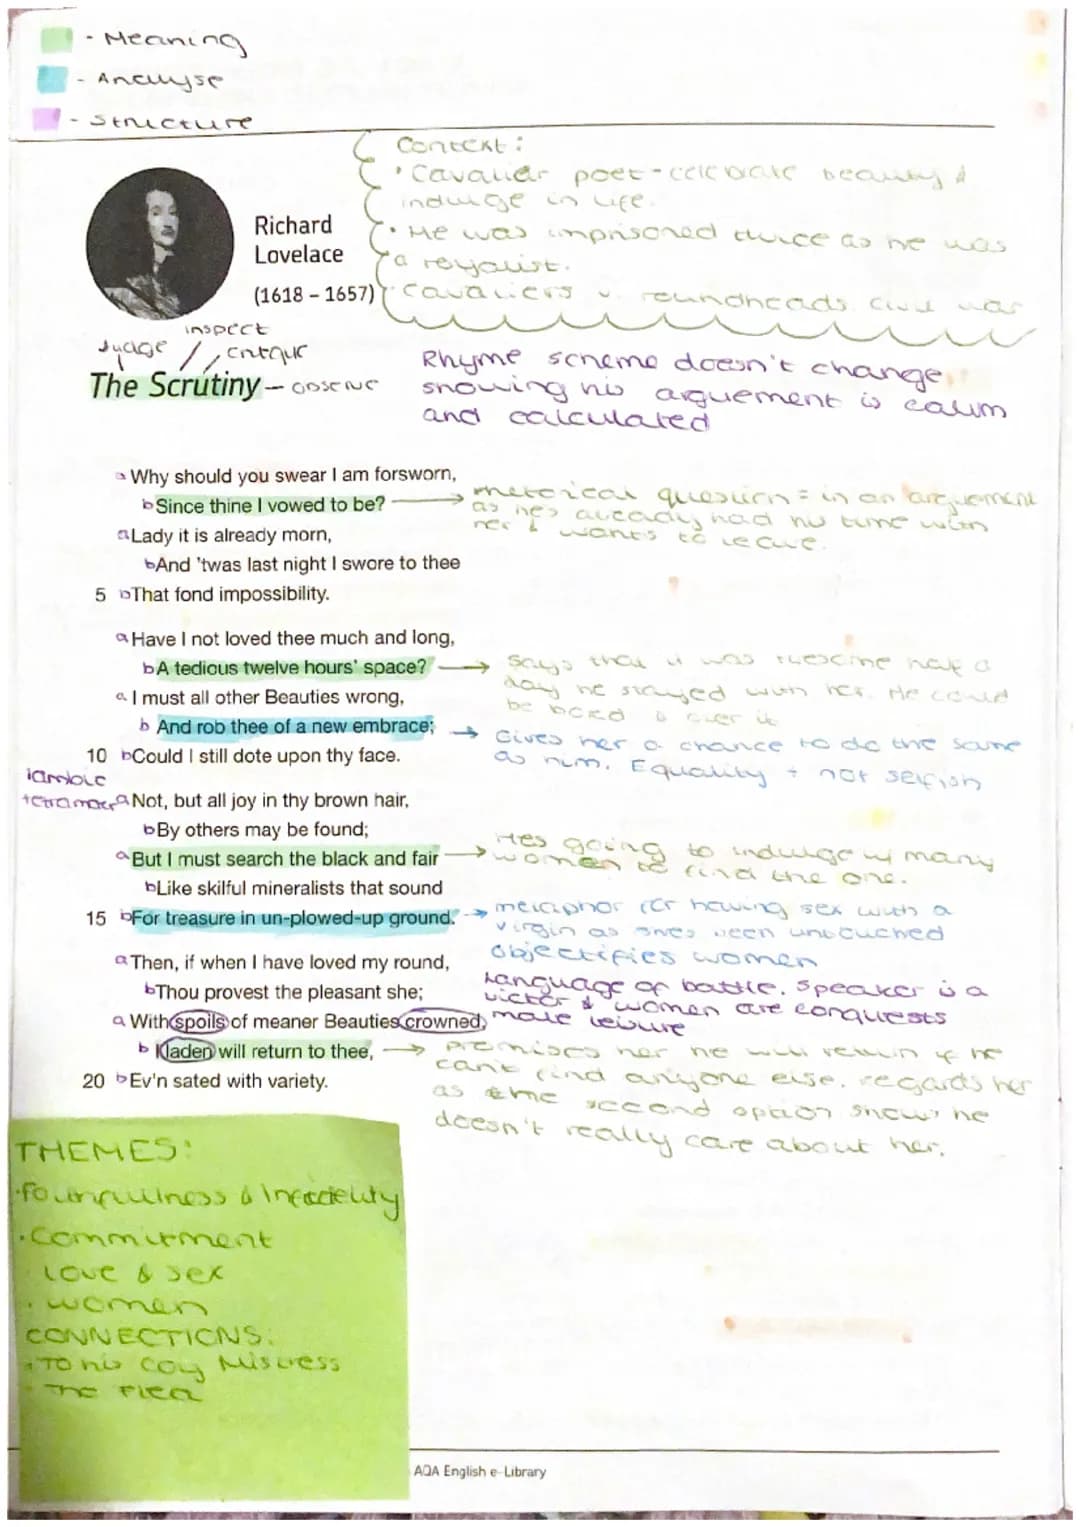 - Meaning
- Analyse
- Structure
Context:
• Cavalier poet - celebrate beauty &
indulge in life.
• He was imprisoned twice as he was
a royalist.
Cavaliers v. roundheads civil war
Richard
Lovelace
(1618 – 1657)
inspect
Judge critque
The Scrutiny - observe
Rhyme scheme doesn't change
showing his arguement is calum
and calculated
a Why should you swear I am forsworn,
b Since thine I vowed to be?
rhetorical question = in an arguement
as hes already had his time with
her & wants to leave.
a Lady it is already morn,
b And 'twas last night I swore to thee
5 b That fond impossibility.
a Have I not loved thee much and long,
b A tedious twelve hours' space?
says that it was tiresome half a
day he stayed with her. He could
be bored over it
a I must all other Beauties wrong,
b And rob thee of a new embrace;
Gives her a chance to do the same
as him. Equality + not selfish
10 b Could I still dote upon thy face.
iambic
tetrameter
a Not, but all joy in thy brown hair,
b By others may be found;
a But I must search the black and fair
Hes going to indulge w/ many
women to find the one.
b Like skilful mineralists that sound
15 b For treasure in un-plowed-up ground.
metaphor for having sex with a
virgin as shes been untouched
objectifies women
a Then, if when I have loved my round,
b Thou provest the pleasant she;
Language of battle. Speaker is a
victor & women are conquests
male leisure
a With spoils of meaner Beauties crowned,
b I laden will return to thee,
promises her he will return if he
can't find anyone else. regards her
as the second option shows he
doesn't really care about her.
20 b Ev'n sated with variety.
THEMES:
• Faithfulness & Infidelity
• Commitment
Love & sex
• women
CONNECTIONS:
• To his Coy Mistress
• The Flea
AQA English e-Library